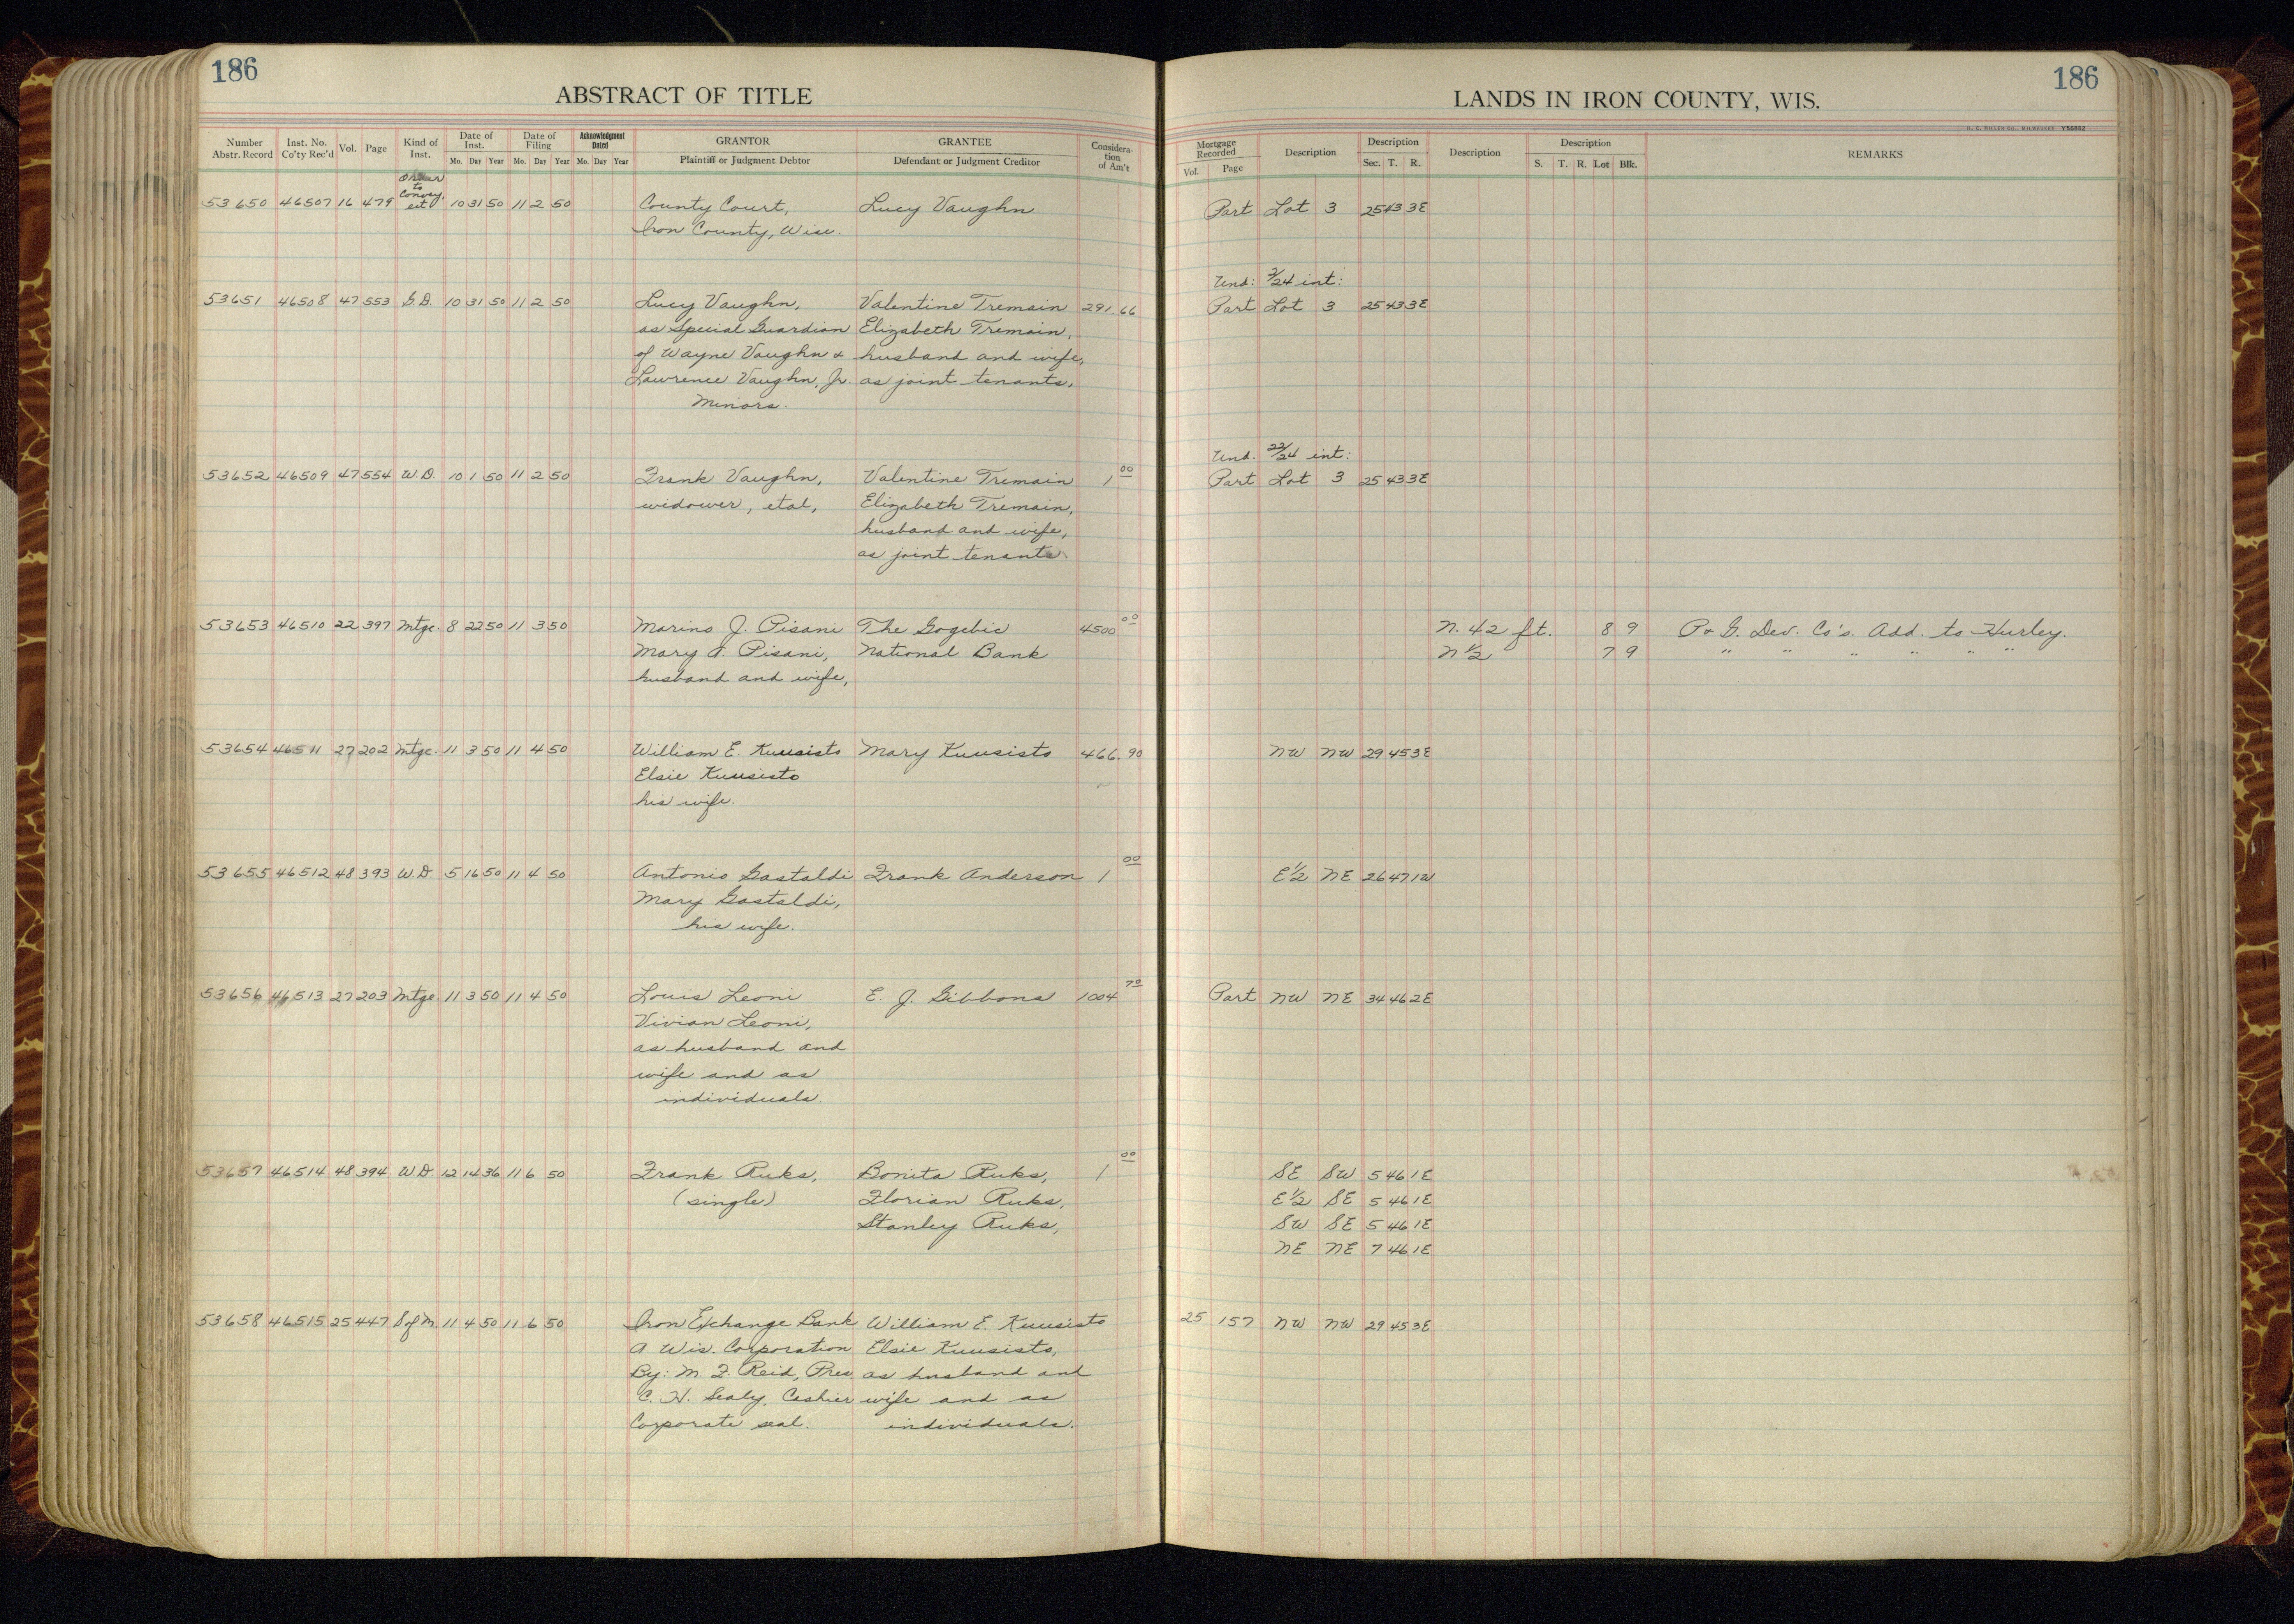 186
ABSTRACT OF TITLE
Number Abstr. Record Inst. No. Co'ty Rec'd Vol. Page Kind of Inst. Date of Inst. Mo. Day Year Date of Filing Mo. Day Year Acknowledgment Dated Mo. Day Year GRANTOR Plaintiff or Judgment Debtor GRANTEE Defendant or Judgment Creditor Considera-tion of Am't
Order to Convey
53650 46507 16 479 est 10 31 50 11 2 50 County Court, Lucy Vaughn
Iron County, Wisc.
53651 46508 47 553 G.D. 10 31 50 11 2 50 Lucy Vaughn, Valentine Tremain 291.66
as Special Guardian Elizabeth Tremain,
of Wayne Vaughn & husband and wife,
Lawrence Vaughn, Jr. as joint tenants.
Minors.
53652 46509 47 554 W.D. 10 1 50 11 2 50 Frank Vaughn, Valentine Tremain 1 00
widower, etal, Elizabeth Tremain,
husband and wife,
as joint tenants
53653 46510 22 397 Mtge. 8 22 50 11 3 50 Marino J. Pisani The Gogebic 4500 00
Mary A. Pisani, National Bank
husband and wife,
53654 46511 27 202 Mtge. 11 3 50 11 4 50 William E. Kuusisto Mary Kuusisto 466.90
Elsie Kuusisto
his wife.
53655 46512 48 393 W.D. 5 16 50 11 4 50 Antonio Gastaldi Frank Anderson 1 00
Mary Gastaldi,
his wife.
53656 46513 27 203 Mtge. 11 3 50 11 4 50 Louis Leoni E. J. Gibbons 1004 70
Vivian Leoni,
as husband and
wife and as
individuals
53657 46514 48 394 W.D. 12 14 36 11 6 50 Frank Ruks, Bonita Ruks, 1 00
(single) Florian Ruks,
Stanley Ruks,
53658 46515 25 447 S of M. 11 4 50 11 6 50 Iron Exchange Bank William E. Kuusisto
A Wis. Corporation Elsie Kuusisto,
By: M. F. Reid, Pres as husband and
C. H. Sealy, Cashier wife and as
Corporate seal. individuals.
186
LANDS IN IRON COUNTY, WIS.
H. C. MILLER CO., MILWAUKEE Y56852
Mortgage Recorded Vol. Page Description Description Sec. T. R. Description Description S. T. R. Lot Blk. REMARKS
Part Lot 3 25 43 3E
Und: 2/24 int:
Part Lot 3 25 43 3E
Und. 22/24 int:
Part Lot 3 25 43 3E
N. 42 ft. 8 9 P. & G. Dev. Co's. Add. to Hurley.
N 1/2 7 9 " " " " " "
NW NW 29 45 3E
E 1/2 NE 26 47 1W
Part NW NE 34 46 2E
SE SW 5 46 1E
E 1/2 SE 5 46 1E
SW SE 5 46 1E
NE NE 7 46 1E
25 157 NW NW 29 45 3E